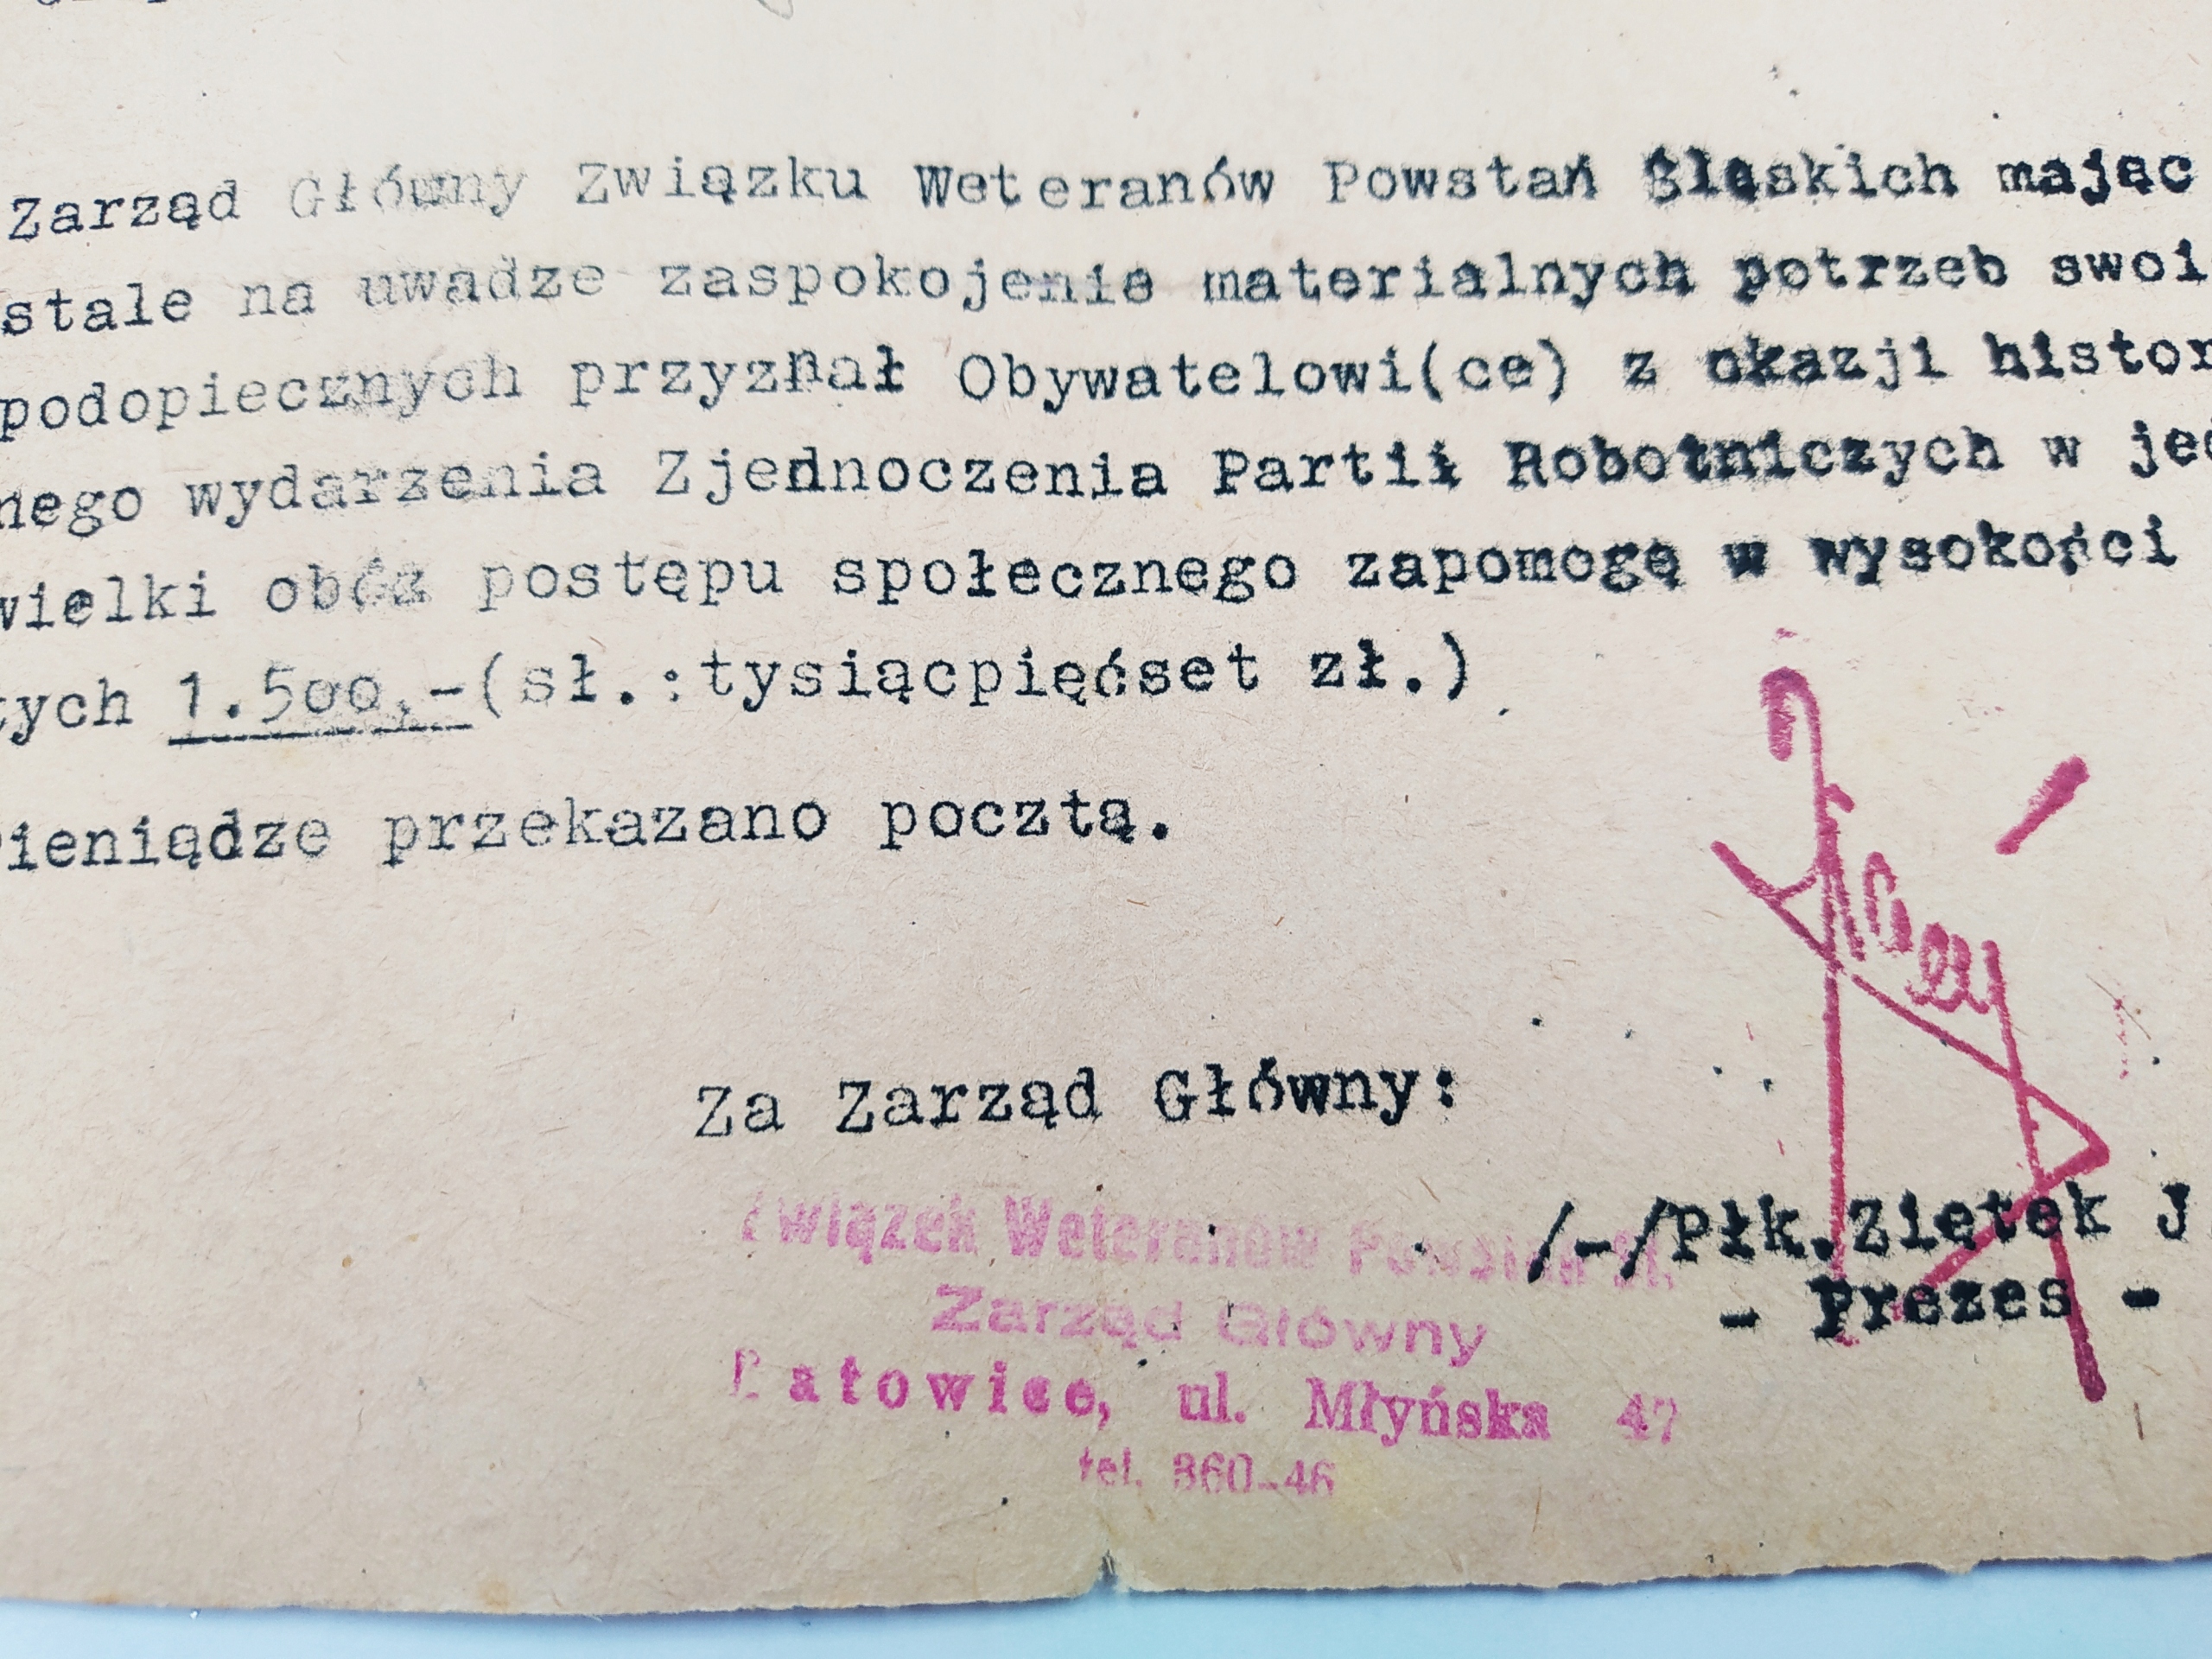 Zarząd Główny Związku Weteranów Powstań Śląskich mając
stale na uwadze zaspokojenie materialnych potrzeb swoi
podopiecznych przyznał Obywatelowi(ce) z okazji histor
nego wydarzenia Zjednoczenia Partii Robotniczych w jed
wielki obóz postępu społecznego zapomogę w wysokości
tych 1.500,-(sł.:tysiącpięćset zł.)
Pieniądze przekazano pocztą.
Za Zarząd Główny:
Związek Weteranów Powstań Śl.
/-/Płk.Ziętek J.
Zarząd Główny
- Prezes -
Katowice, ul. Młyńska 47
tel. 360-46